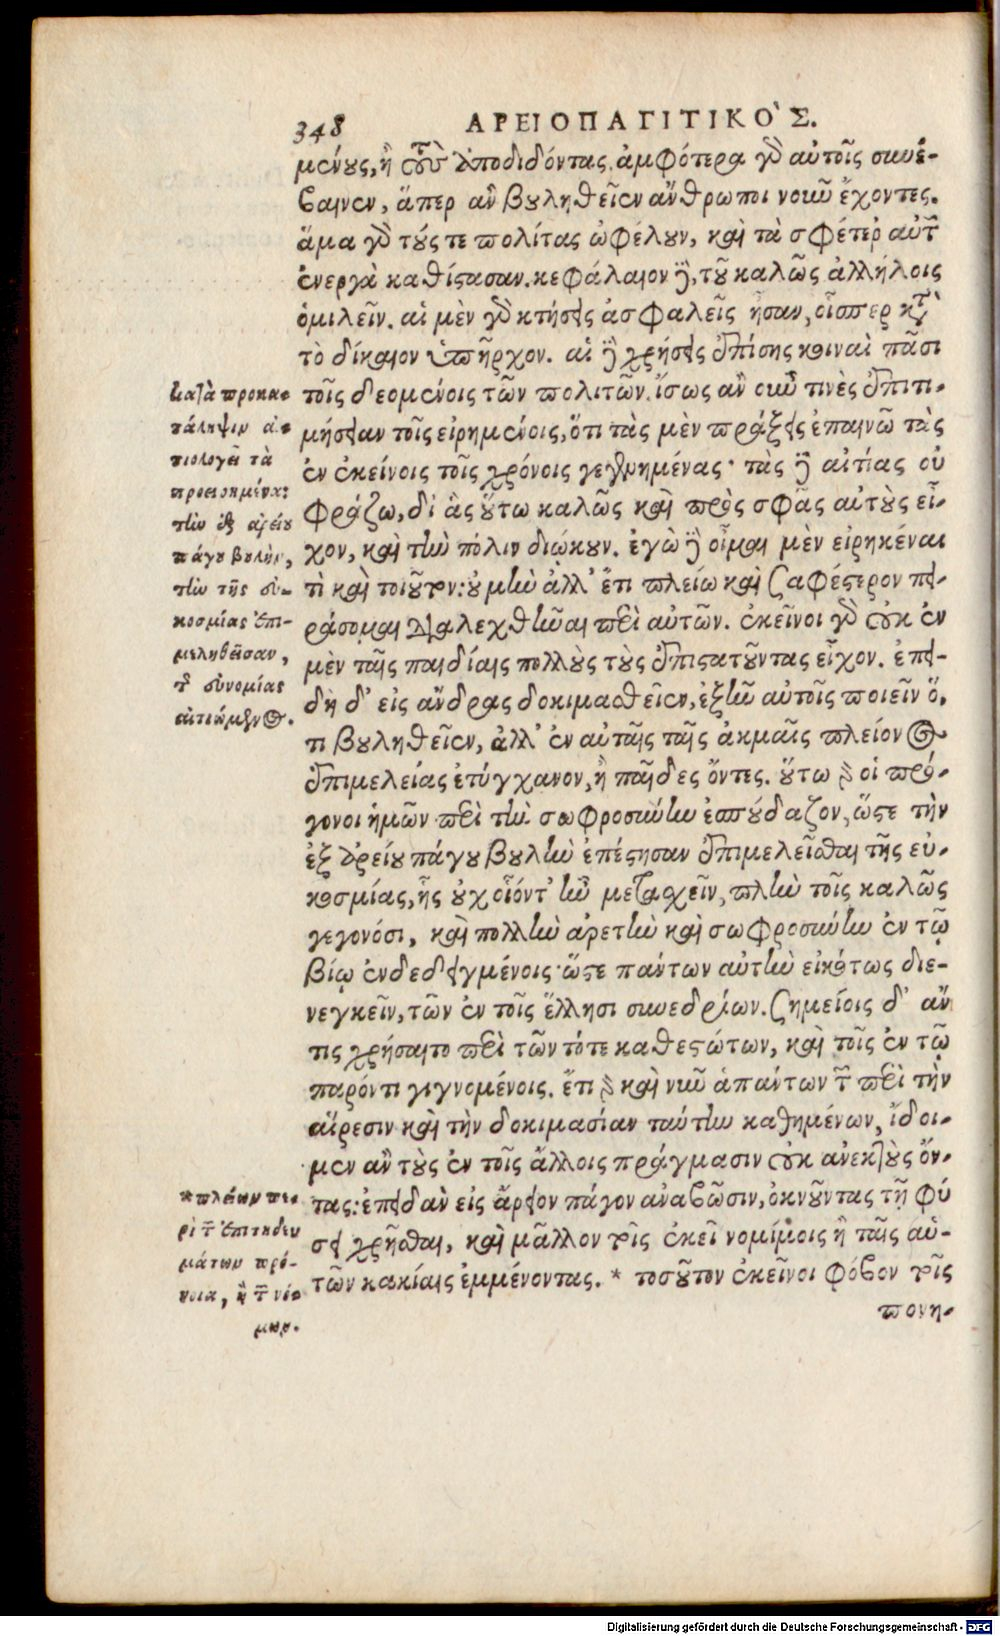 348 ΑΡΕΙΟΠΑΓΙΤΙΚΟ῾Σ.
μένους, ἢ τοὺς ἀποδιδόντας. ἀμφότερα γὰρ αὐτοῖς συνέ-
βαινεν, ἅπερ ἂν βουληθεῖεν ἄνθρωποι νοῦν ἔχοντες.
ἅμα γὰρ τούς τε πολίτας ὠφέλουν, καὶ τὰ σφέτερ αὐτῶν
ἐνεργὰ καθίστασαν. κεφάλαιον δὲ, τοῦ καλῶς ἀλλήλοις
ὁμιλεῖν. αἱ μὲν γὰρ κτήσεις ἀσφαλεῖς ἦσαν, οἷσπερ κατὰ
τὸ δίκαιον ὑπῆρχον. αἱ δὲ χρήσεις ἐπίσης κοιναὶ πᾶσι
τοῖς δεομένοις τῶν πολιτῶν. ἴσως ἂν οὖν τινὲς ἐπιτι-
μήσειαν τοῖς εἰρημένοις, ὅτι τὰς μὲν πράξεις ἐπαινῶ τὰς
ἐν ἐκείνοις τοῖς χρόνοις γεγενημένας· τὰς δὲ αἰτίας οὐ
φράζω, δι᾽ ἃς οὕτω καλῶς καὶ πρὸς σφᾶς αὐτοὺς εἶ-
χον, καὶ τὴν πόλιν διῴκουν. ἐγὼ δὲ οἶμαι μὲν εἰρηκέναι
τὶ καὶ τοιοῦτον: οὐ μὴν ἀλλ᾽ ἔτι πλείω καὶ σαφέστερον πει-
ράσομαι διαλεχθῆναι περὶ αὐτῶν. ἐκεῖνοι γὰρ οὐκ ἐν
μὲν ταῖς παιδίαις πολλοὺς τοὺς ἐπιστατοῦντας εἶχον. ἐπει-
δὴ δ᾽ εἰς ἄνδρας δοκιμασθεῖεν, ἐξῆν αὐτοῖς ποιεῖν ὅ,
τι βουληθεῖεν, ἀλλ᾽ ἐν αὐταῖς ταῖς ἀκμαῖς πλείονος
ἐπιμελείας ἐτύγχανον, ἢ παῖδες ὄντες. οὕτω γὰρ οἱ πρό-
γονοι ἡμῶν περὶ τὴν σωφροσύνην ἐσπούδαζον, ὥστε τὴν
ἐξ ἀρείου πάγου βουλὴν ἐπέστησαν ἐπιμελεῖσθαι τῆς εὐ-
κοσμίας, ἧς οὐχ οἷόντ᾽ ἦν μετασχεῖν, πλὴν τοῖς καλῶς
γεγονόσι, καὶ πολλὴν ἀρετὴν καὶ σωφροσύνην ἐν τῷ
βίῳ ἐνδεδειγμένοις· ὥστε πάντων αὐτὴν εἰκότως διε-
νεγκεῖν, τῶν ἐν τοῖς ἕλλησι συνεδρίων. σημείοις δ᾽ ἄν
τις χρήσαιτο περὶ τῶν τότε καθεστώτων, καὶ τοῖς ἐν τῷ
παρόντι γιγνομένοις. ἔτι γὰρ καὶ νῦν ἁπάντων τῶν περὶ τὴν
αἵρεσιν καὶ τὴν δοκιμασίαν ταύτην καθημένων, ἴδοι-
μεν ἂν τοὺς ἐν τοῖς ἄλλοις πράγμασιν οὐκ ἀνεκτοὺς ὄν-
τας: ἐπειδὰν εἰς ἄρειον πάγον ἀναβῶσιν, ὀκνοῦντας τῇ φύ
σει χρῆσθαι, καὶ μᾶλλον τοῖς ἐκεῖ νομίμοις ἢ ταῖς αὑ-
τῶν κακίαις ἐμμένοντας. * τοσοῦτον ἐκεῖνοι φόβον τοῖς
πονη-
κατὰ προκα-
τάληψιν αἰ-
τιολογεῖ τὰ
προειρημένα:
τὴν ἐξ ἀρείου
πάγου βουλὴν,
τὴν τῆς εὐ-
κοσμίας ἐπι-
μεληθεῖσαν,
τῆς εὐνομίας
αἰτιώμενος.
*πλείων πε-
ρὶ τῶν ἐπιτηδευ
μάτων πρό-
νοια, ἢ τῶν νό-
μων.
Digitalisierung gefördert durch die Deutsche Forschungsgemeinschaft - DFG